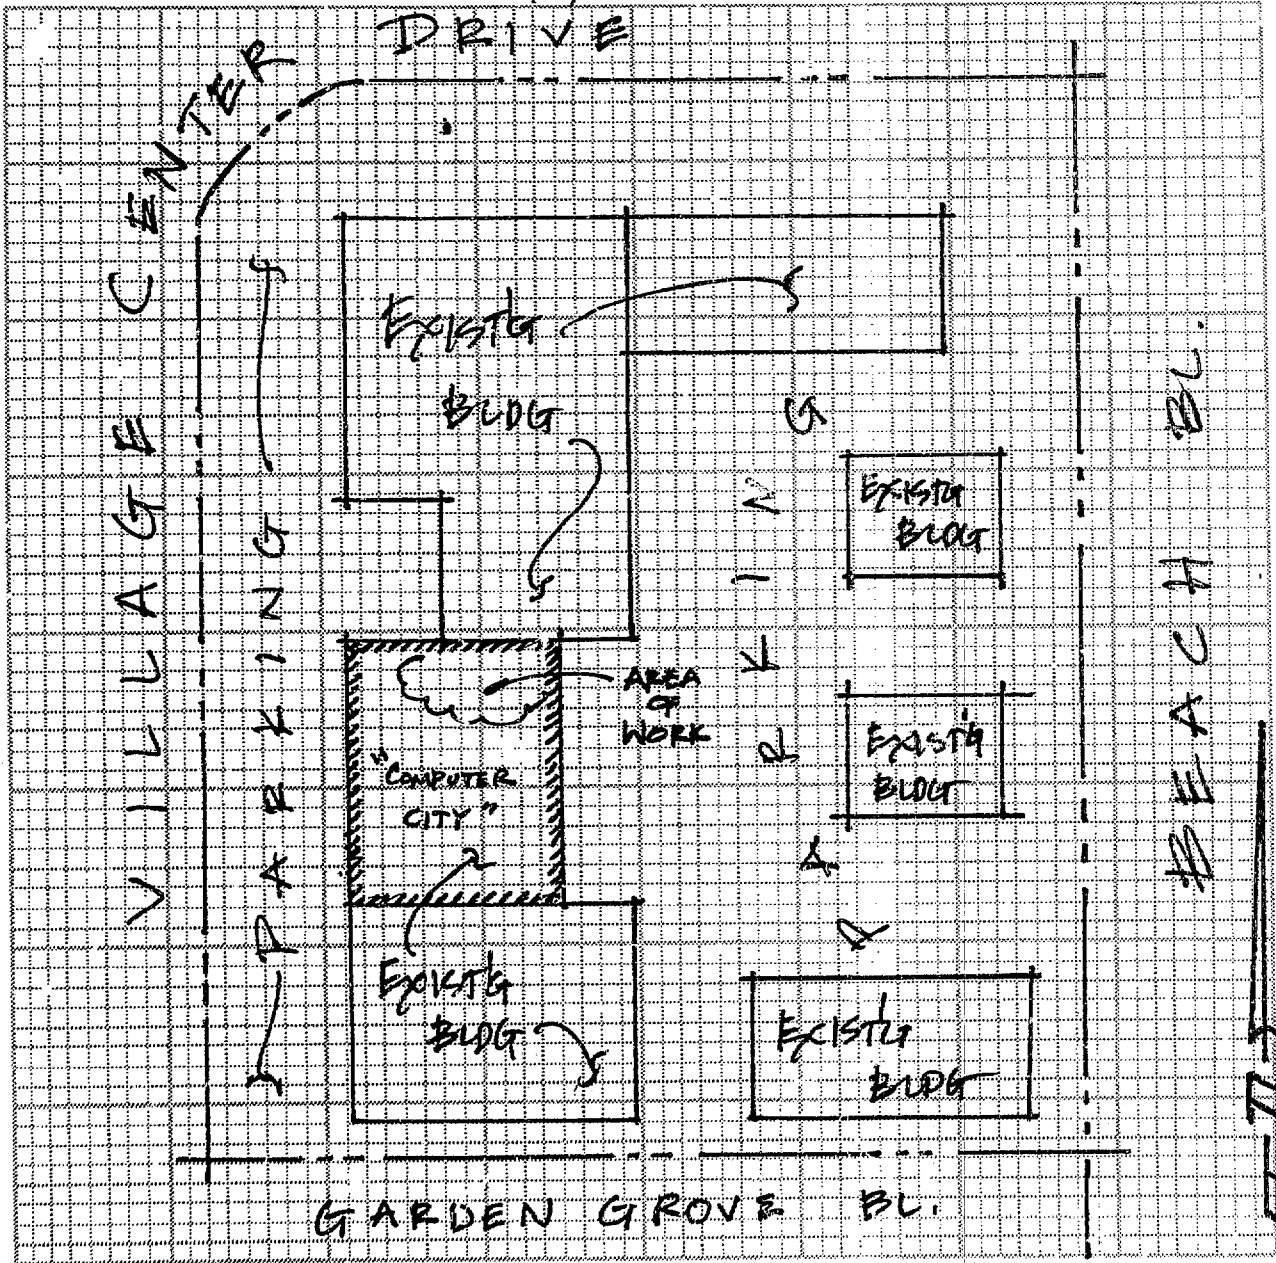 VILLAGE CENTER
DRIVE
EXIST'G
BLDG
PARKING
PARKING
EXIST'G
BLDG
AREA
OF
WORK
"COMPUTER
CITY"
EXIST'G
BLDG
EXIST'G
BLDG
EXIST'G
BLDG
BEACH BL.
GARDEN GROVE BL.